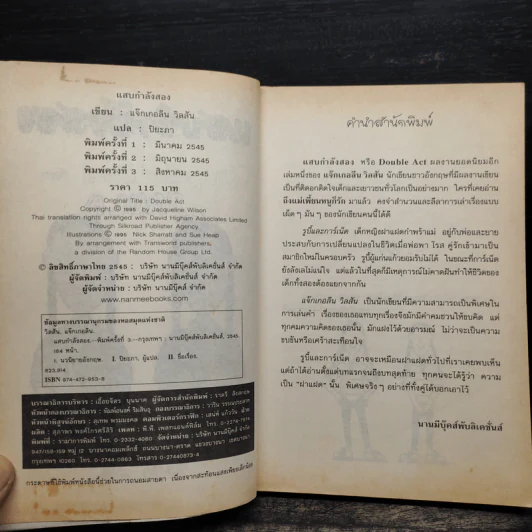 แสบกำลังสอง
เขียน : แจ๊กเกอลีน วิลสัน
แปล : ปิยะภา
พิมพ์ครั้งที่ 1 : มีนาคม 2545
พิมพ์ครั้งที่ 2 : มิถุนายน 2545
พิมพ์ครั้งที่ 3 : สิงหาคม 2545
ราคา 115 บาท
Original Title : Double Act
Copyright © 1995 by Jacqueline Wilson
Thai translation rights arranged with David Higham Associates Limited
Through Silkroad Publisher Agency.
Illustrations © 1995 Nick Sharratt and Sue Heap
By arrangement with Transworld publishers,
a division of the Random House Group Ltd.
© ลิขสิทธิ์ภาษาไทย 2545 : บริษัท นานมีบุ๊คส์พับลิเคชั่นส์ จำกัด
ผู้จัดพิมพ์ : บริษัท นานมีบุ๊คส์พับลิเคชั่นส์ จำกัด
ผู้จัดจำหน่าย : บริษัท นานมีบุ๊คส์ จำกัด
www.nanmeebooks.com
ข้อมูลทางบรรณานุกรมของหอสมุดแห่งชาติ
วิลสัน, แจ๊กเกอลีน.
แสบกำลังสอง.--พิมพ์ครั้งที่ 3.--กรุงเทพฯ : นานมีบุ๊คส์พับลิเคชั่นส์, 2545.
184 หน้า.
1. นวนิยายอังกฤษ. I. ปิยะภา, ผู้แปล. II. ชื่อเรื่อง.
823.914
ISBN 974-472-953-8
บรรณาธิการบริหาร : เอื้อยจิตร บุนนาค ผู้จัดการสำนักพิมพ์ :
หัวหน้ากองบรรณาธิการ : กองบรรณาธิการ :
หัวหน้าพิสูจน์อักษร : คอมพิวเตอร์กราฟิก :
เพลท :
พิมพ์ที่ : จัดจำหน่าย : บริษัท นานมีบุ๊คส์ จำกัด
กรุงเทพฯ 10260 โทร. โทรสาร
กระดาษที่ใช้พิมพ์หนังสือนี้ช่วยในการถนอมสายตา เนื่องจากสะท้อนแสงเพียงเล็กน้อย
คำนำสำนักพิมพ์
แสบกำลังสอง หรือ Double Act ผลงานยอดนิยมอีก
เล่มหนึ่งของ แจ๊กเกอลีน วิลสัน นักเขียนชาวอังกฤษที่มีผลงานเขียน
เป็นที่ติดอกติดใจเด็กและเยาวชนทั่วโลกเป็นอย่างมาก ใครที่เคยอ่าน
ถึงแม่เพี้ยนหนูก็รัก มาแล้ว คงจำสำนวนและลีลาการเล่าเรื่องแบบ
เผ็ด ๆ มัน ๆ ของนักเขียนคนนี้ได้ดี
รูบี้และการ์เน็ต เด็กหญิงฝาแฝดกำพร้าแม่ อยู่กับพ่อและยาย
ประสบกับการเปลี่ยนแปลงในชีวิตเมื่อพ่อพา โรส คู่รักเข้ามาเป็น
สมาชิกใหม่ในครอบครัว รูบี้ผู้แก่นแก้วยอมรับไม่ได้ ในขณะที่การ์เน็ต
ยังลังเลไม่แน่ใจ แต่แล้วในที่สุดก็มีเหตุการณ์ไม่คาดฝันทำให้ชีวิตของ
เด็กทั้งสองต้องแยกจากกัน
แจ๊กเกอลีน วิลสัน เป็นนักเขียนที่มีความสามารถเป็นพิเศษใน
การเล่นคำ เรื่องของเธอแทบทุกเรื่องจึงมักมีคำคมชวนให้ขบคิด แต่
ทุกคมความคิดของเธอนั้น มักแฝงไว้ด้วยอารมณ์ ไม่ว่าจะเป็นความ
ขบขันหรือเศร้าสะเทือนใจ
รูบี้และการ์เน็ต อาจจะเหมือนฝาแฝดทั่วไปที่เราเคยพบเห็น
แต่ถ้าได้อ่านตั้งแต่บทแรกจนถึงบทสุดท้าย ทุกคนจะได้รู้ว่า ความ
เป็น "ฝาแฝด" นั้น พิเศษจริงๆ อย่างที่ทั้งคู่ได้บอกเอาไว้
นานมีบุ๊คส์พับลิเคชั่นส์